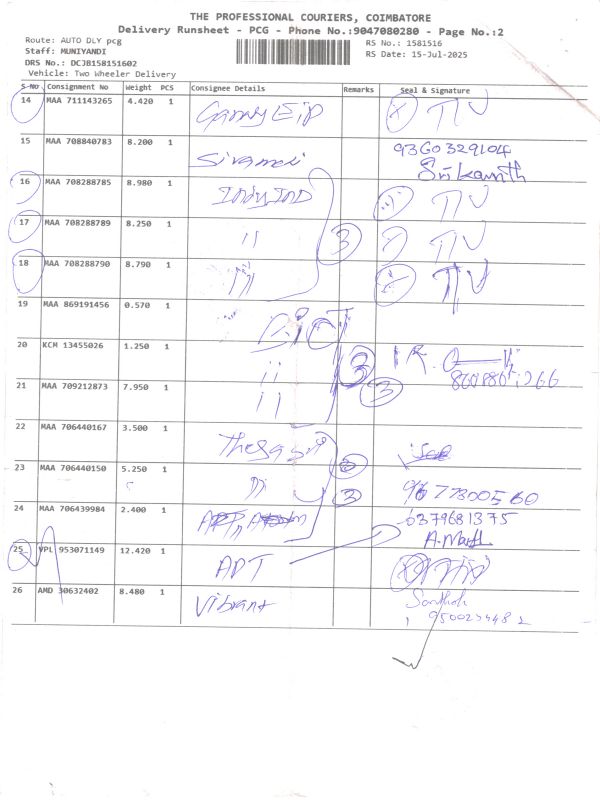 THE PROFESSIONAL COURIERS, COIMBATORE
Delivery Runsheet - PCG - Phone No.:9047080280 - Page No.:2
Route: AUTO DLY pcg
Staff: MUNIYANDI
DRS No.: DCJB158151602
Vehicle: Two Wheeler Delivery
RS No.: 1581516
RS Date: 15-Jul-2025
S-No Consignment No Weight PCS Consignee Details Remarks Seal & Signature
14 MAA 711143265 4.420 1
15 MAA 708840783 8.200 1 9360329104
Srikanth
16 MAA 708288785 8.980 1 IndusInd
17 MAA 708288789 8.250 1 " 3
18 MAA 708288790 8.790 1 "
19 MAA 869191456 0.570 1
20 KCM 13455026 1.250 1 " 3
21 MAA 709212873 7.950 1 " 3
22 MAA 706440167 3.500 1
23 MAA 706440150 5.250 1 " 3 9677300560
24 MAA 706439984 2.400 1 6379681375
25 VPL 953071149 12.420 1 APT
26 AMD 30632402 8.480 1 Vibrant